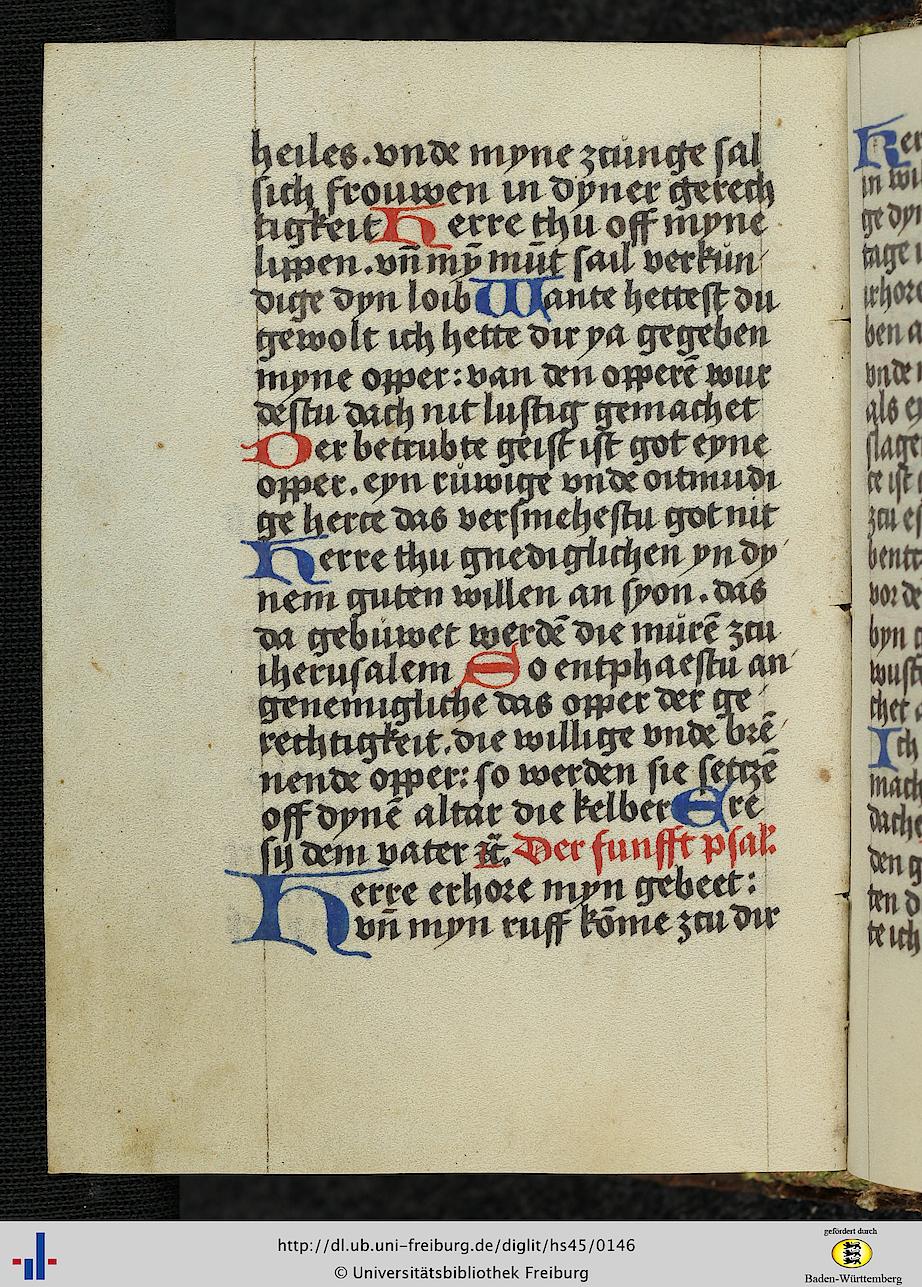 heiles. vnde myne zcunge sal
sich frouwen in dyner gerech
tigkeit Herre thu off myne
lippen. vn̄ mȳ mūt sail verkun
dige dyn loib Wante hettest du
gewolt ich hette dir ya gegeben
myne opper: van den opperē wur
destu dach nit lustig gemachet
Der betrubte geist ist got eyne
opper. eyn ruwige vnde oitmudi
ge herce das versmehestu got nit
Herre thu gnediglichen yn dy
nem guten willen an syon. das
da gebuwet werdē die murē zcu
iherusalem So entphaestu an
genemigliche das opper der ge
rechtigkeit. die willige vnde brē
nende opper: so werden sie setczē
off dynē altar die kelber Ere
sij dem vater ⁊c̄. Der funfft psal.
Herre erhore myn gebeet:
vn̄ myn ruff kōme zcu dir
http://dl.ub.uni-freiburg.de/diglit/hs45/0146
© Universitätsbibliothek Freiburg
gefördert durch
Baden-Württemberg